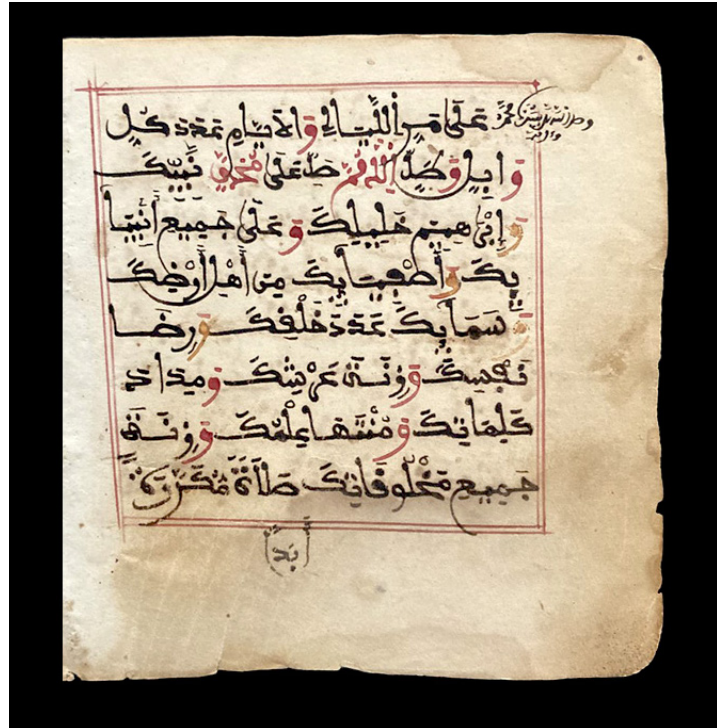 عَلَى مَرِّ اللَّيَالِي وَالاَيَّامِ عَدَدَ كُلِّ
وَابِلٍ وَطَلٍّ اللَّهُمَّ صَلِّ عَلَى مُحَمَّدٍ نَبِيِّكَ
وَإِبْرَاهِيمَ خَلِيلِكَ وَعَلَى جَمِيعِ أَنْبِيَا
يِكَ وَأَصْفِيَايِكَ مِنْ أَهْلِ أَرْضِكَ
وَسَمَايِكَ عَدَدَ خَلْقِكَ وَرِضَا
نَفْسِكَ وَزِنَةَ عَرْشِكَ وَمِدَادَ
كَلِمَاتِكَ وَمُنْتَهَا عِلْمِكَ وَزِنَةَ
جَمِيعِ مَخْلُوقَاتِكَ صَلاَةً مُكَرَّرَةً
أَبَدًا